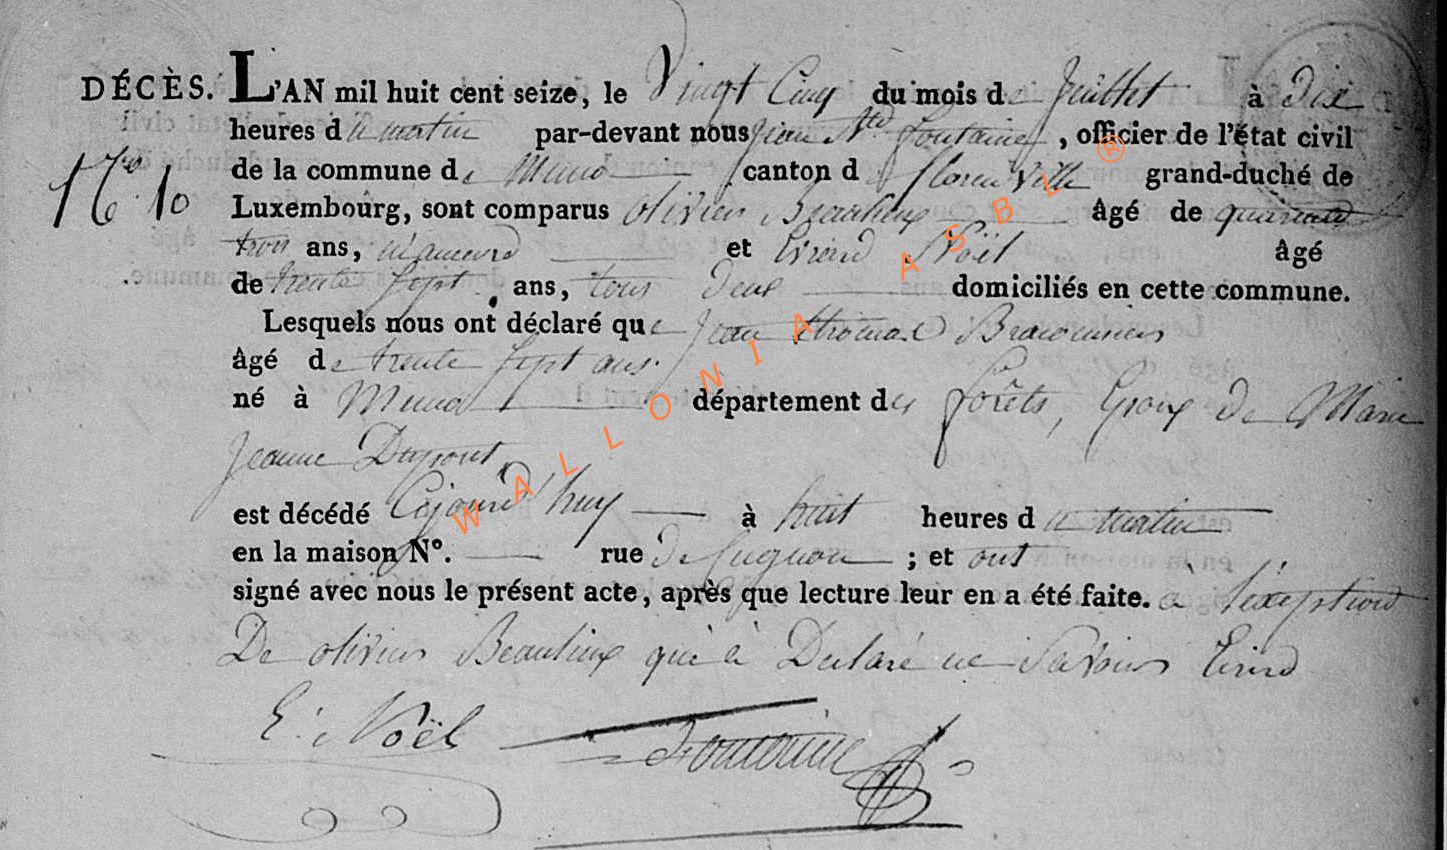 DÉCÈS. L'AN mil huit cent seize, le Vingt Cinq du mois de Juillet à dix
heures du matin par-devant nous Jean Bte fontaine, officier de l'état civil
N.ro 10
de la commune de Muno canton de florenville grand-duché de
Luxembourg, sont comparus olivier Beaulieux âgé de quarante
trois ans, manœuvre et Erard Noël âgé
de trente sept ans, tous deux domiciliés en cette commune.
Lesquels nous ont déclaré que Jean thomas
âgé de trente sept ans.
né à Muno département des forêts, Epoux de Marie
Jeanne Dupont,
est décédé Cejourd'huy à huit heures du matin
en la maison N°. rue de Cugnon ; et ont
signé avec nous le présent acte, après que lecture leur en a été faite. à l'exeption
De olivier Beaulieux qui à Declaré ne Savoir
E. Noël fontaine
WALLONIA ASBL ®